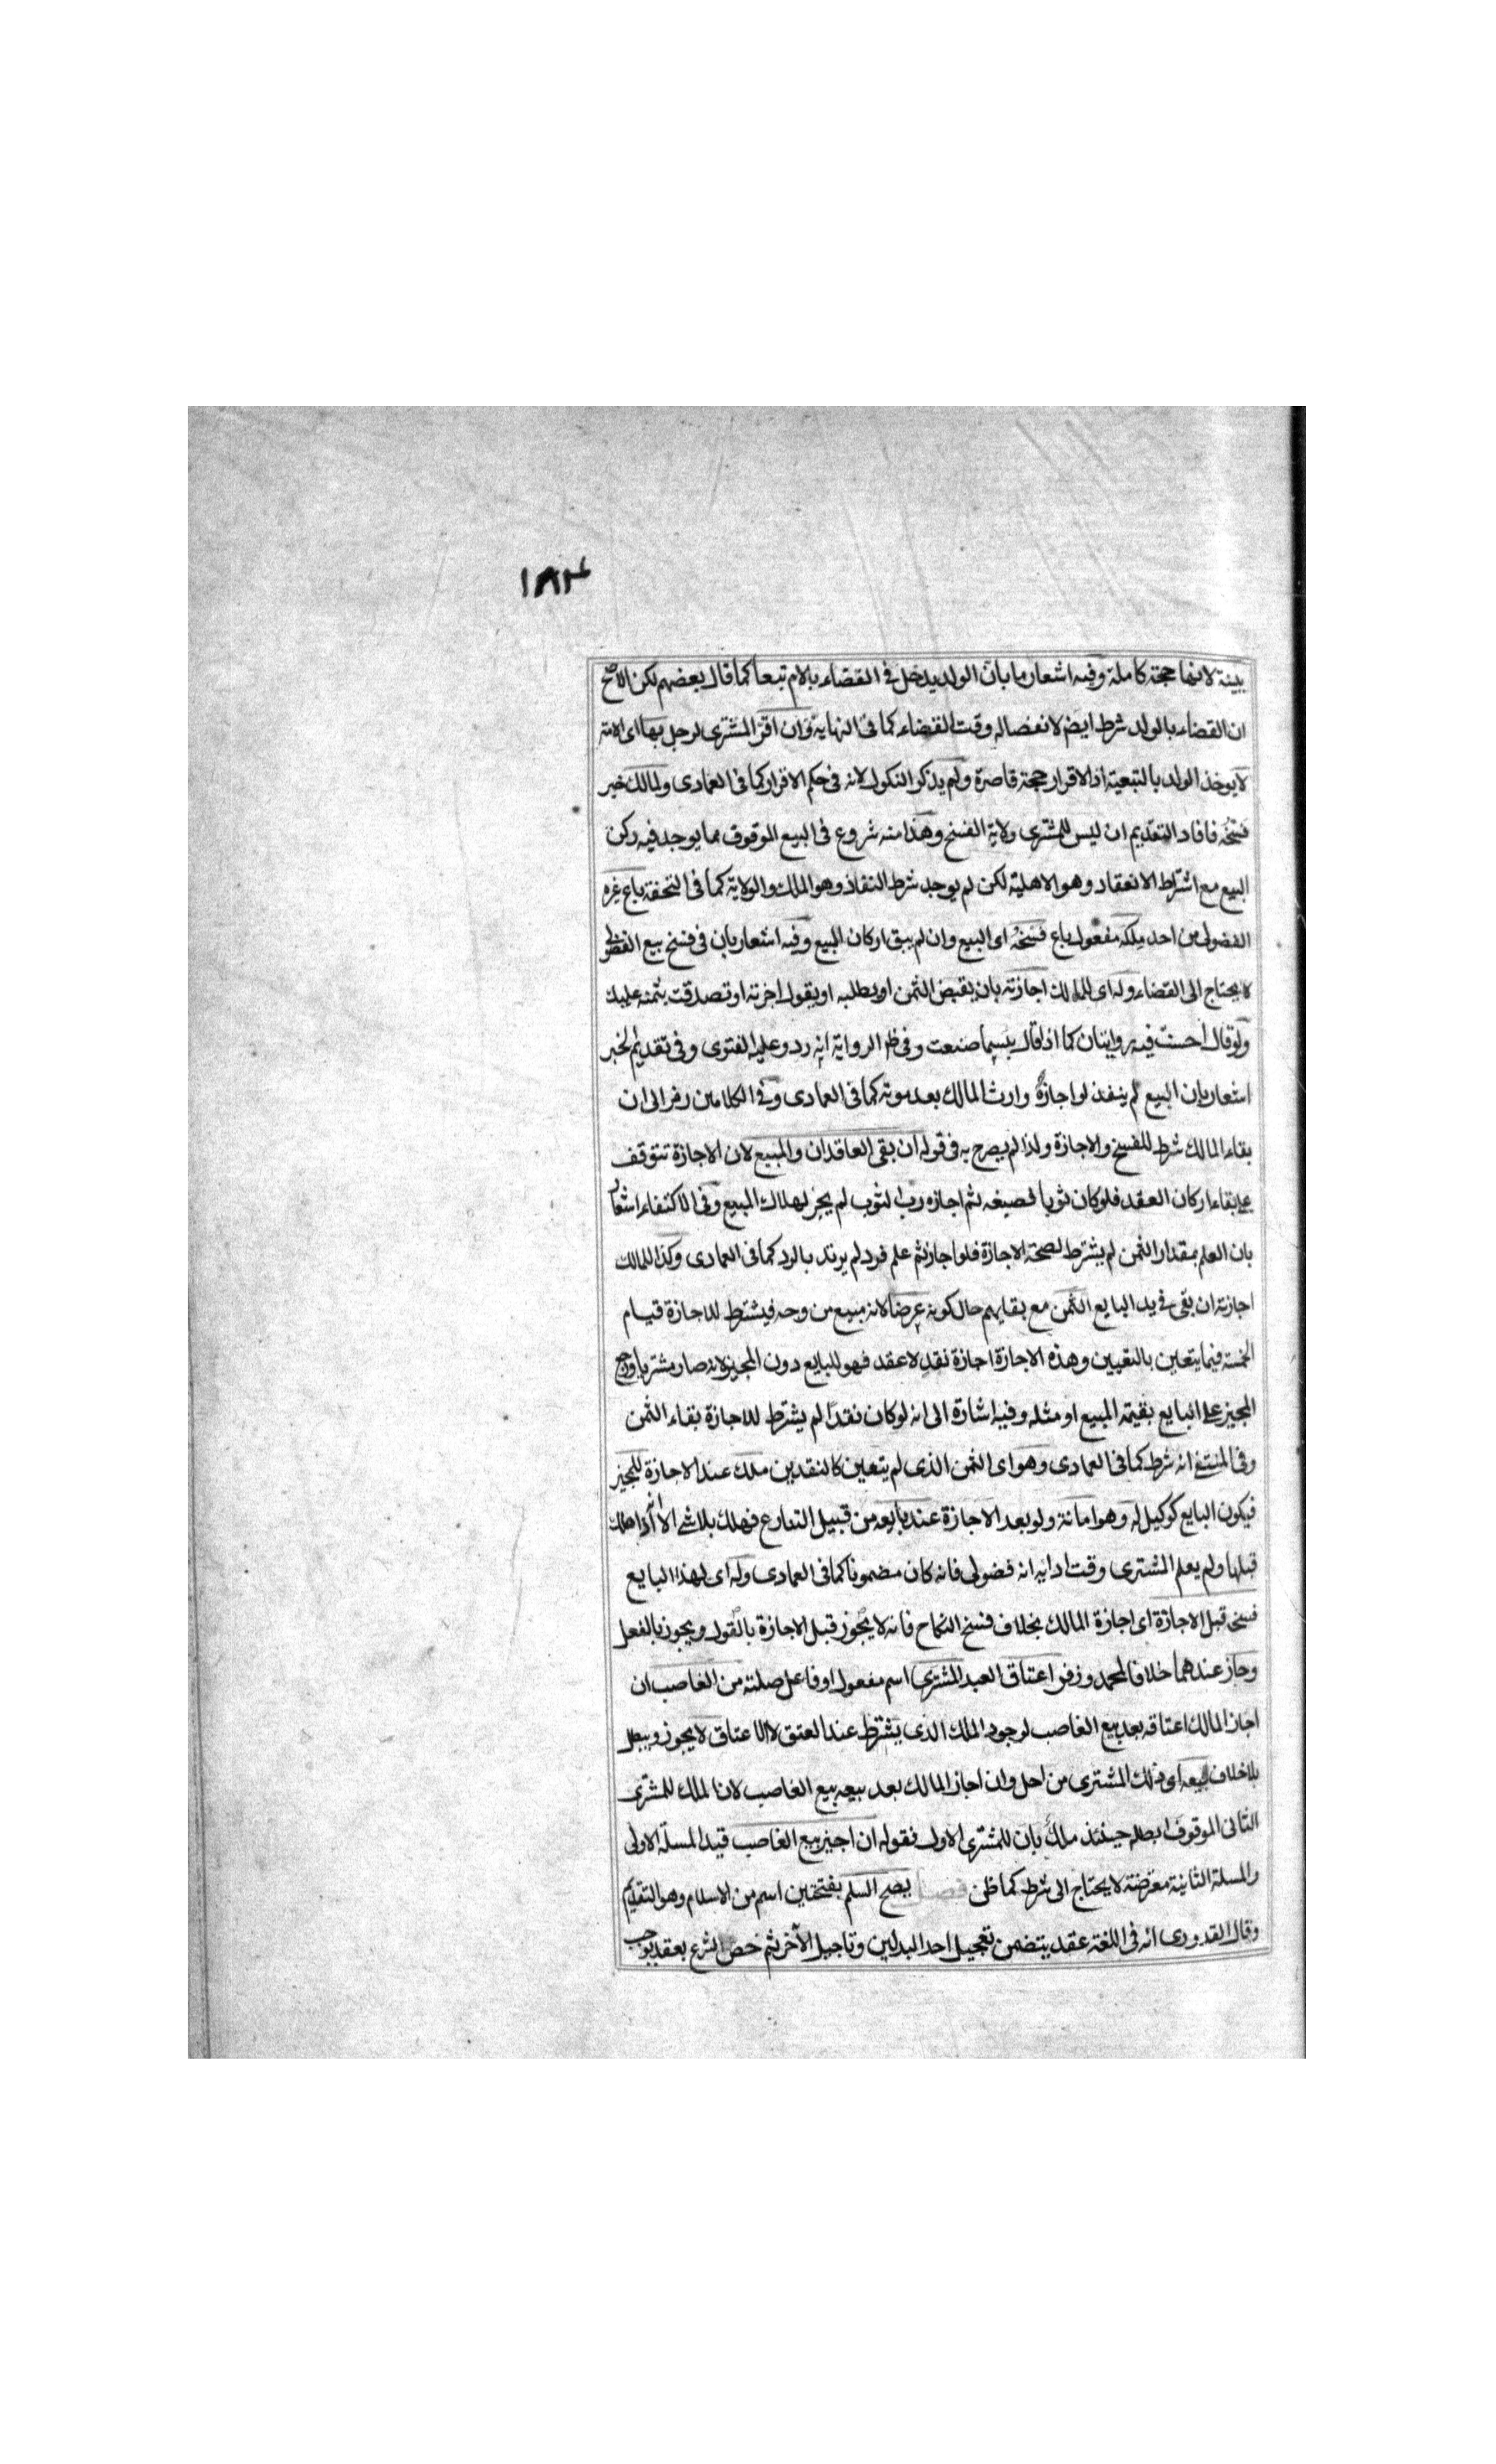 ١٨٢
ببينة لانها حجة كاملة وفيه اشعار ما بان الولد يدخل فى القضاء بالام تبعا كما قال بعضهم لكن الاصح
ان القضاء بالولد شرط ايضم لانفصاله وقت القضاء كما فى النهاية وان اقر المشترى لرجل بها اى الامة
لا يوخذ الولد بالتبعية اذ الاقرار حجة قاصرة ولم يذكر النكول لانه فى حكم الاقرار كما فى العمادى ولمالك خبر
فسخه فافاد التقديم ان ليس للمشترى ولاية الفسخ وهذا منه شروع فى البيع الموقوف مما يوجد فيه ركن
البيع مع اشتراط الانعقاد وهو الاهلية لكن لم يوجد شرط النفاذ وهو الملك والولاية كما فى التحفة باع غيره
الفضولى من احد ملكه مفعول باع فسخه اى البيع وان لم يبق اركان البيع وفيه اشعار بان فى فسخ بيع الفضولى
لا يحتاج الى القضاء وله اى للمالك اجازته بان يقبض الثمن او يطلبه او يقول اجزته او تصدقت بثمنه عليك
ولو قال احسنت فيه روايتان كما اذا قال بيسما صنعت وفى ظم الرواية انه رد وعليه الفتوى وفى تقديم الخبر
اشعار بان البيع لم ينفذ لو اجازة وارث المالك بعد موته كما فى العمادى وفى الكلامين رمز الى ان
بقاء المالك شرط للفسخ والاجازة ولذا لم يصرح به فى قوله ان بقى العاقدان والمبيع لان الاجازة تتوقف
على بقاء اركان العقد فلو كان ثوبا فصبغه ثم اجازه رب الثوب لم يجز لهلاك المبيع وفى الاكتفاء اشعار
بان العلم بمقدار الثمن لم يشترط لصحة الاجازة فلو اجاز ثم علم فرد لم يرتد بالرد كما فى العمادى وكذا للمالك
اجازته ان بقى فى يد البايع الثمن مع بقايهم حال كونه عرضا لانه مبيع من وجه فيشترط للاجازة قيام
الخمسة فيما يتعين بالتعيين وهذه الاجازة اجازة نقد لا عقد فهو للبايع دون المجيز لانه صار مشتريا ورجع
المجيز على البايع بقيمة المبيع او مثله وفيه اشارة الى انه لو كان نقدا لم يشترط للاجازة بقاء الثمن
وفى المنتقى انه شرط كما فى العمادى وهو اى الثمن الذى لم يتعين كالنقدين ملك عند الاجازة للمجيز
فيكون البايع كوكيل له وهو امانة ولو بعد الاجازة عند بايعه من قبيل التنازع فهلك بلا شى الا انه اذا هلك
قبلها ولم يعلم المشترى وقت ادايه انه فضولى فانه كان مضمونا كما فى العمادى وله اى لهذا البايع
فسخه قبل الاجازة اى اجازة المالك بخلاف فسخ النكاح فانه لا يجوز قبل الاجازة بالقول ويجوز بالفعل
وجاز عندهما خلافا لمحمد وزفر اعتاق العبد المشترى اسم مفعول او فاعل صلته من الغاصب ان
اجاز المالك اعتاقه بعد بيع الغاصب لوجود الملك الذى يشترط عند العتق لا الاعتاق لا يجوز ويبطل
بلا خلاف بيعه اى ذلك المشترى من احل وان اجاز المالك بعد بيعه بيع الغاصب لان الملك للمشترى
الثانى الموقوف ابطله حينئذ ملك بان للمشترى الاول فقوله ان اجيز بيع الغاصب قيد المسلة الاولى
والمسلة الثانية معترضة لا يحتاج الى شرط كما ظن فصل يصح السلم بفتحتين اسم من الاسلام وهو التقديم
وقال القدورى انه فى اللغة عقد يتضمن تعجيل احد البدلين وتاجيل الآخر ثم خص الشرع بعقد يوجب